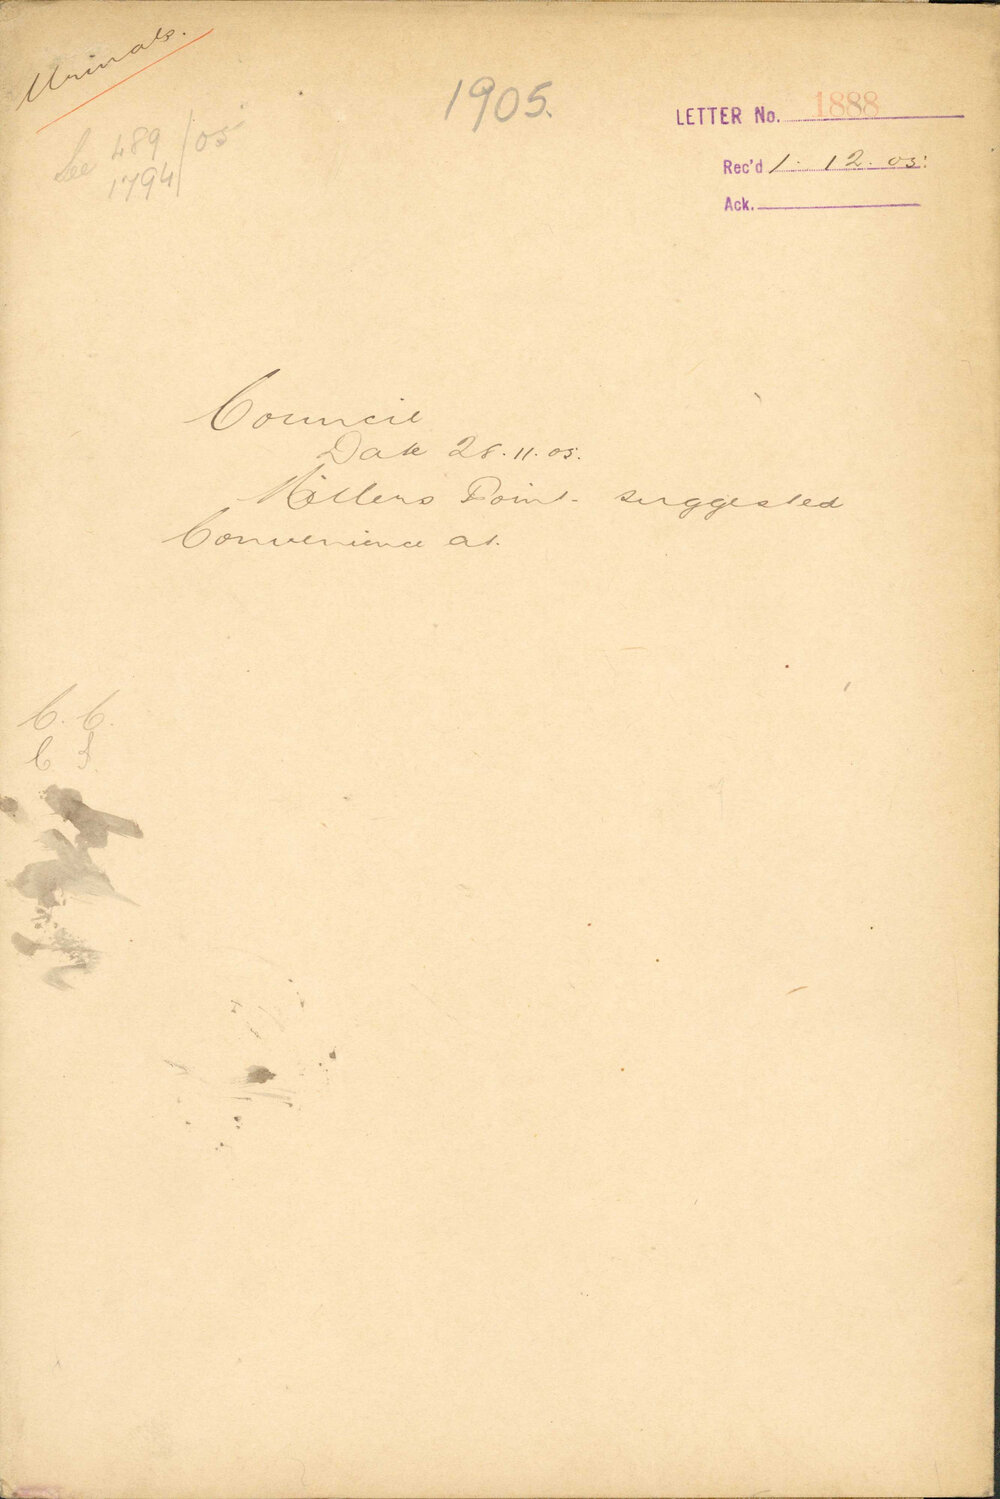 Urinals.
1905.
LETTER No. 1888
Rec'd 1. 12. 05.
Ack.
See 489/05
1794
Council
Date 28.11.05.
Millers Point - suggested
Convenience at.
C. C.
C S.